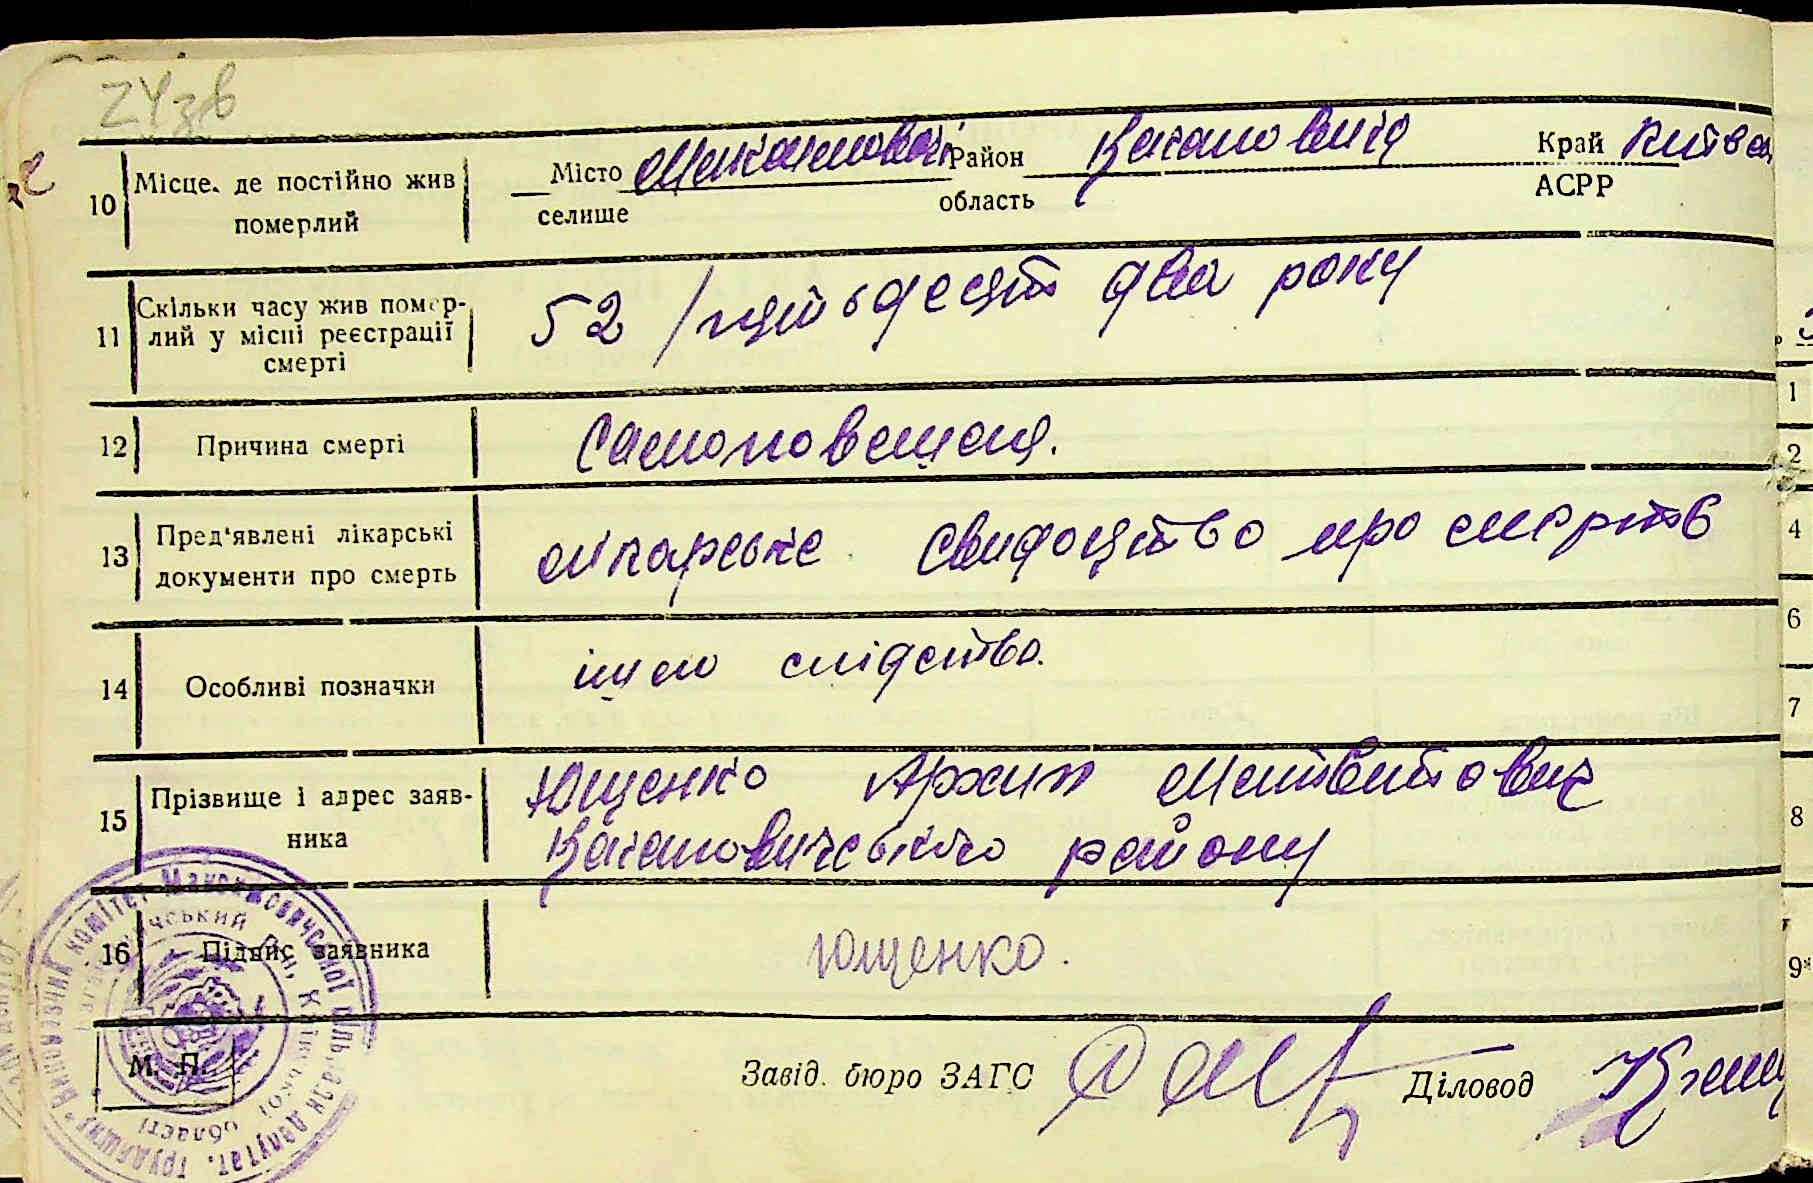 24зв
10 Місце, де постійно жив померлий
Місто селище Максимовичі Район область Кагановича Край АСРР Київська
11 Скільки часу жив помер-
лий у місці реєстрації
смерті
52 /пятьдесят два року
12 Причина смерті
Самоповешення.
13 Пред'явлені лікарські
документи про смерть
лікарське свидоцтво про смерть
14 Особливі позначки
ішло слідство.
15 Прізвище і адрес заяв-
ника
Ющенко Архип Матвитович
Кагановичського району
16 Підпис заявника
Ющенко.
М. П.
Завід. бюро ЗАГС
Діловод
Виконавчий комітет Максимовичської сільради депутат. трудящих
Київської області
1
2
4
6
7
8
9